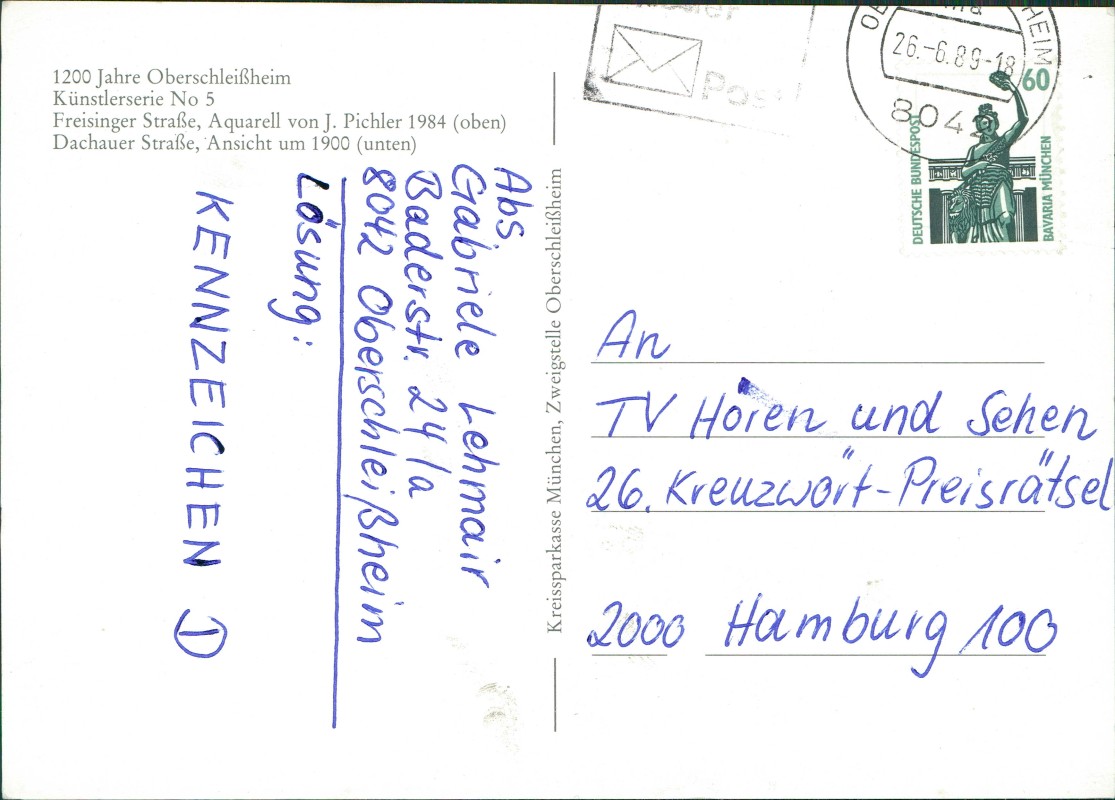 1200 Jahre Oberschleißheim
Künstlerserie No 5
Freisinger Straße, Aquarell von J. Pichler 1984 (oben)
Dachauer Straße, Ansicht um 1900 (unten)
Abs
Gabriele Lehmair
Baderstr. 24/a
8042 Oberschleißheim
Lösung:
KENNZEICHEN
Kreissparkasse München, Zweigstelle Oberschleißheim
Post
26.-6.89-18
8042
60
DEUTSCHE BUNDESPOST
BAVARIA MÜNCHEN
An
TV Hören und Sehen
26. Kreuzwört-Preisrätsel
2000 Hamburg 100